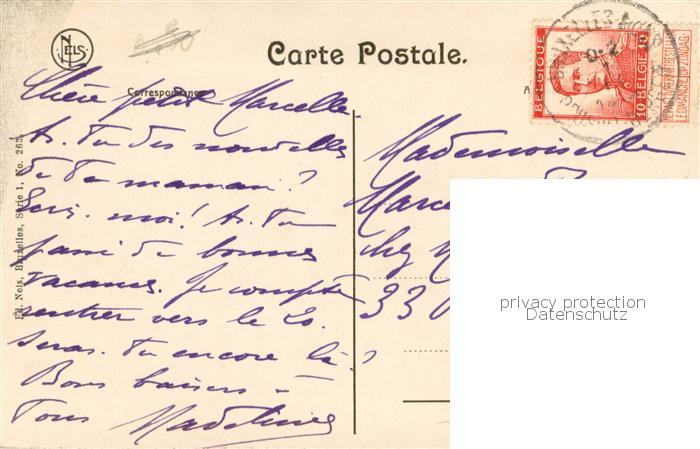 NELS
Carte Postale.
Correspondance
A
BELGIQUE
10 BELGIË 10
Ed. Nels, Bruxelles, Série 1, No. 263
Chère petit Marcelle
As-tu des nouvelles
de ta maman?
Ecris-moi! As-tu
passé de bonnes
vacances. Je compte
rentrer vers le 20.
Seras-tu encore là?
Bons baisers à
Tous Madeleine
Mademoiselle
Marce
chez
330
privacy protection
Datenschutz